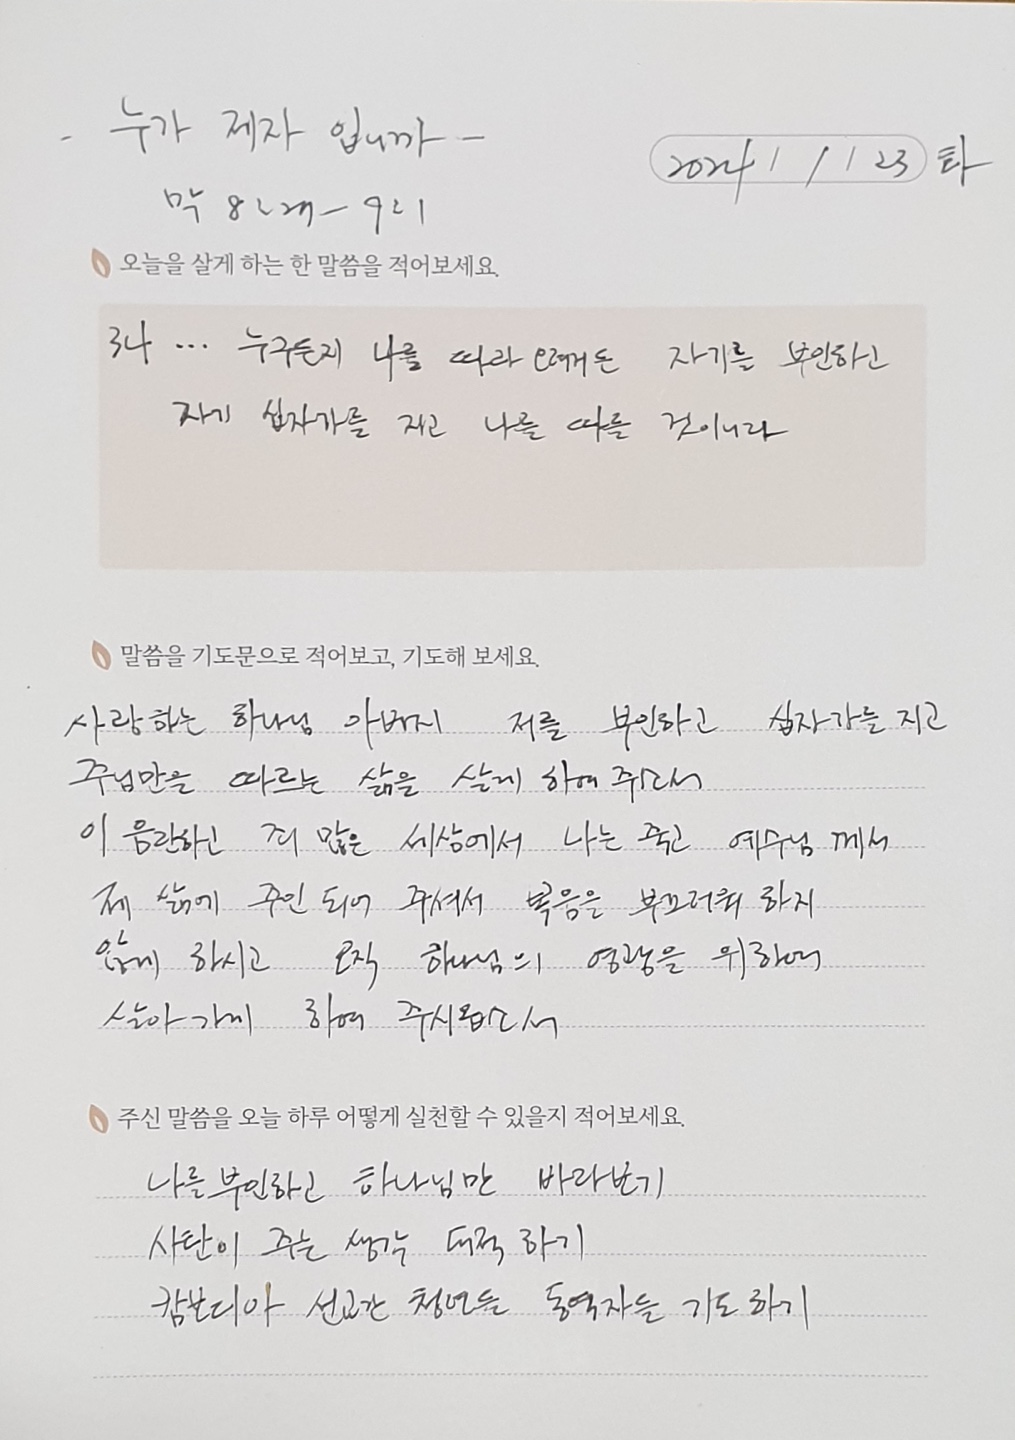 - 누가 제자 입니까 -
2024 / 1 / 23 화
막 8:27-9:1
오늘을 살게 하는 한 말씀을 적어보세요.
34 ... 누구든지 나를 따라 오려거든 자기를 부인하고
자기 십자가를 지고 나를 따를 것이니라
말씀을 기도문으로 적어보고, 기도해 보세요.
사랑하는 하나님 아버지 저를 부인하고 십자가를 지고
주님만을 따르는 삶을 살게 하여 주소서
이 음란하고 죄 많은 세상에서 나는 죽고 예수님 께서
제 삶에 주인 되어 주셔서 복음을 부끄러워 하지
않게 하시고 오직 하나님의 영광을 위하여
살아가게 하여 주시옵소서
주신 말씀을 오늘 하루 어떻게 실천할 수 있을지 적어보세요.
나를 부인하고 하나님만 바라보기
사탄이 주는 생각 대적하기
캄보디아 선교간 청년들 동역자들 기도하기